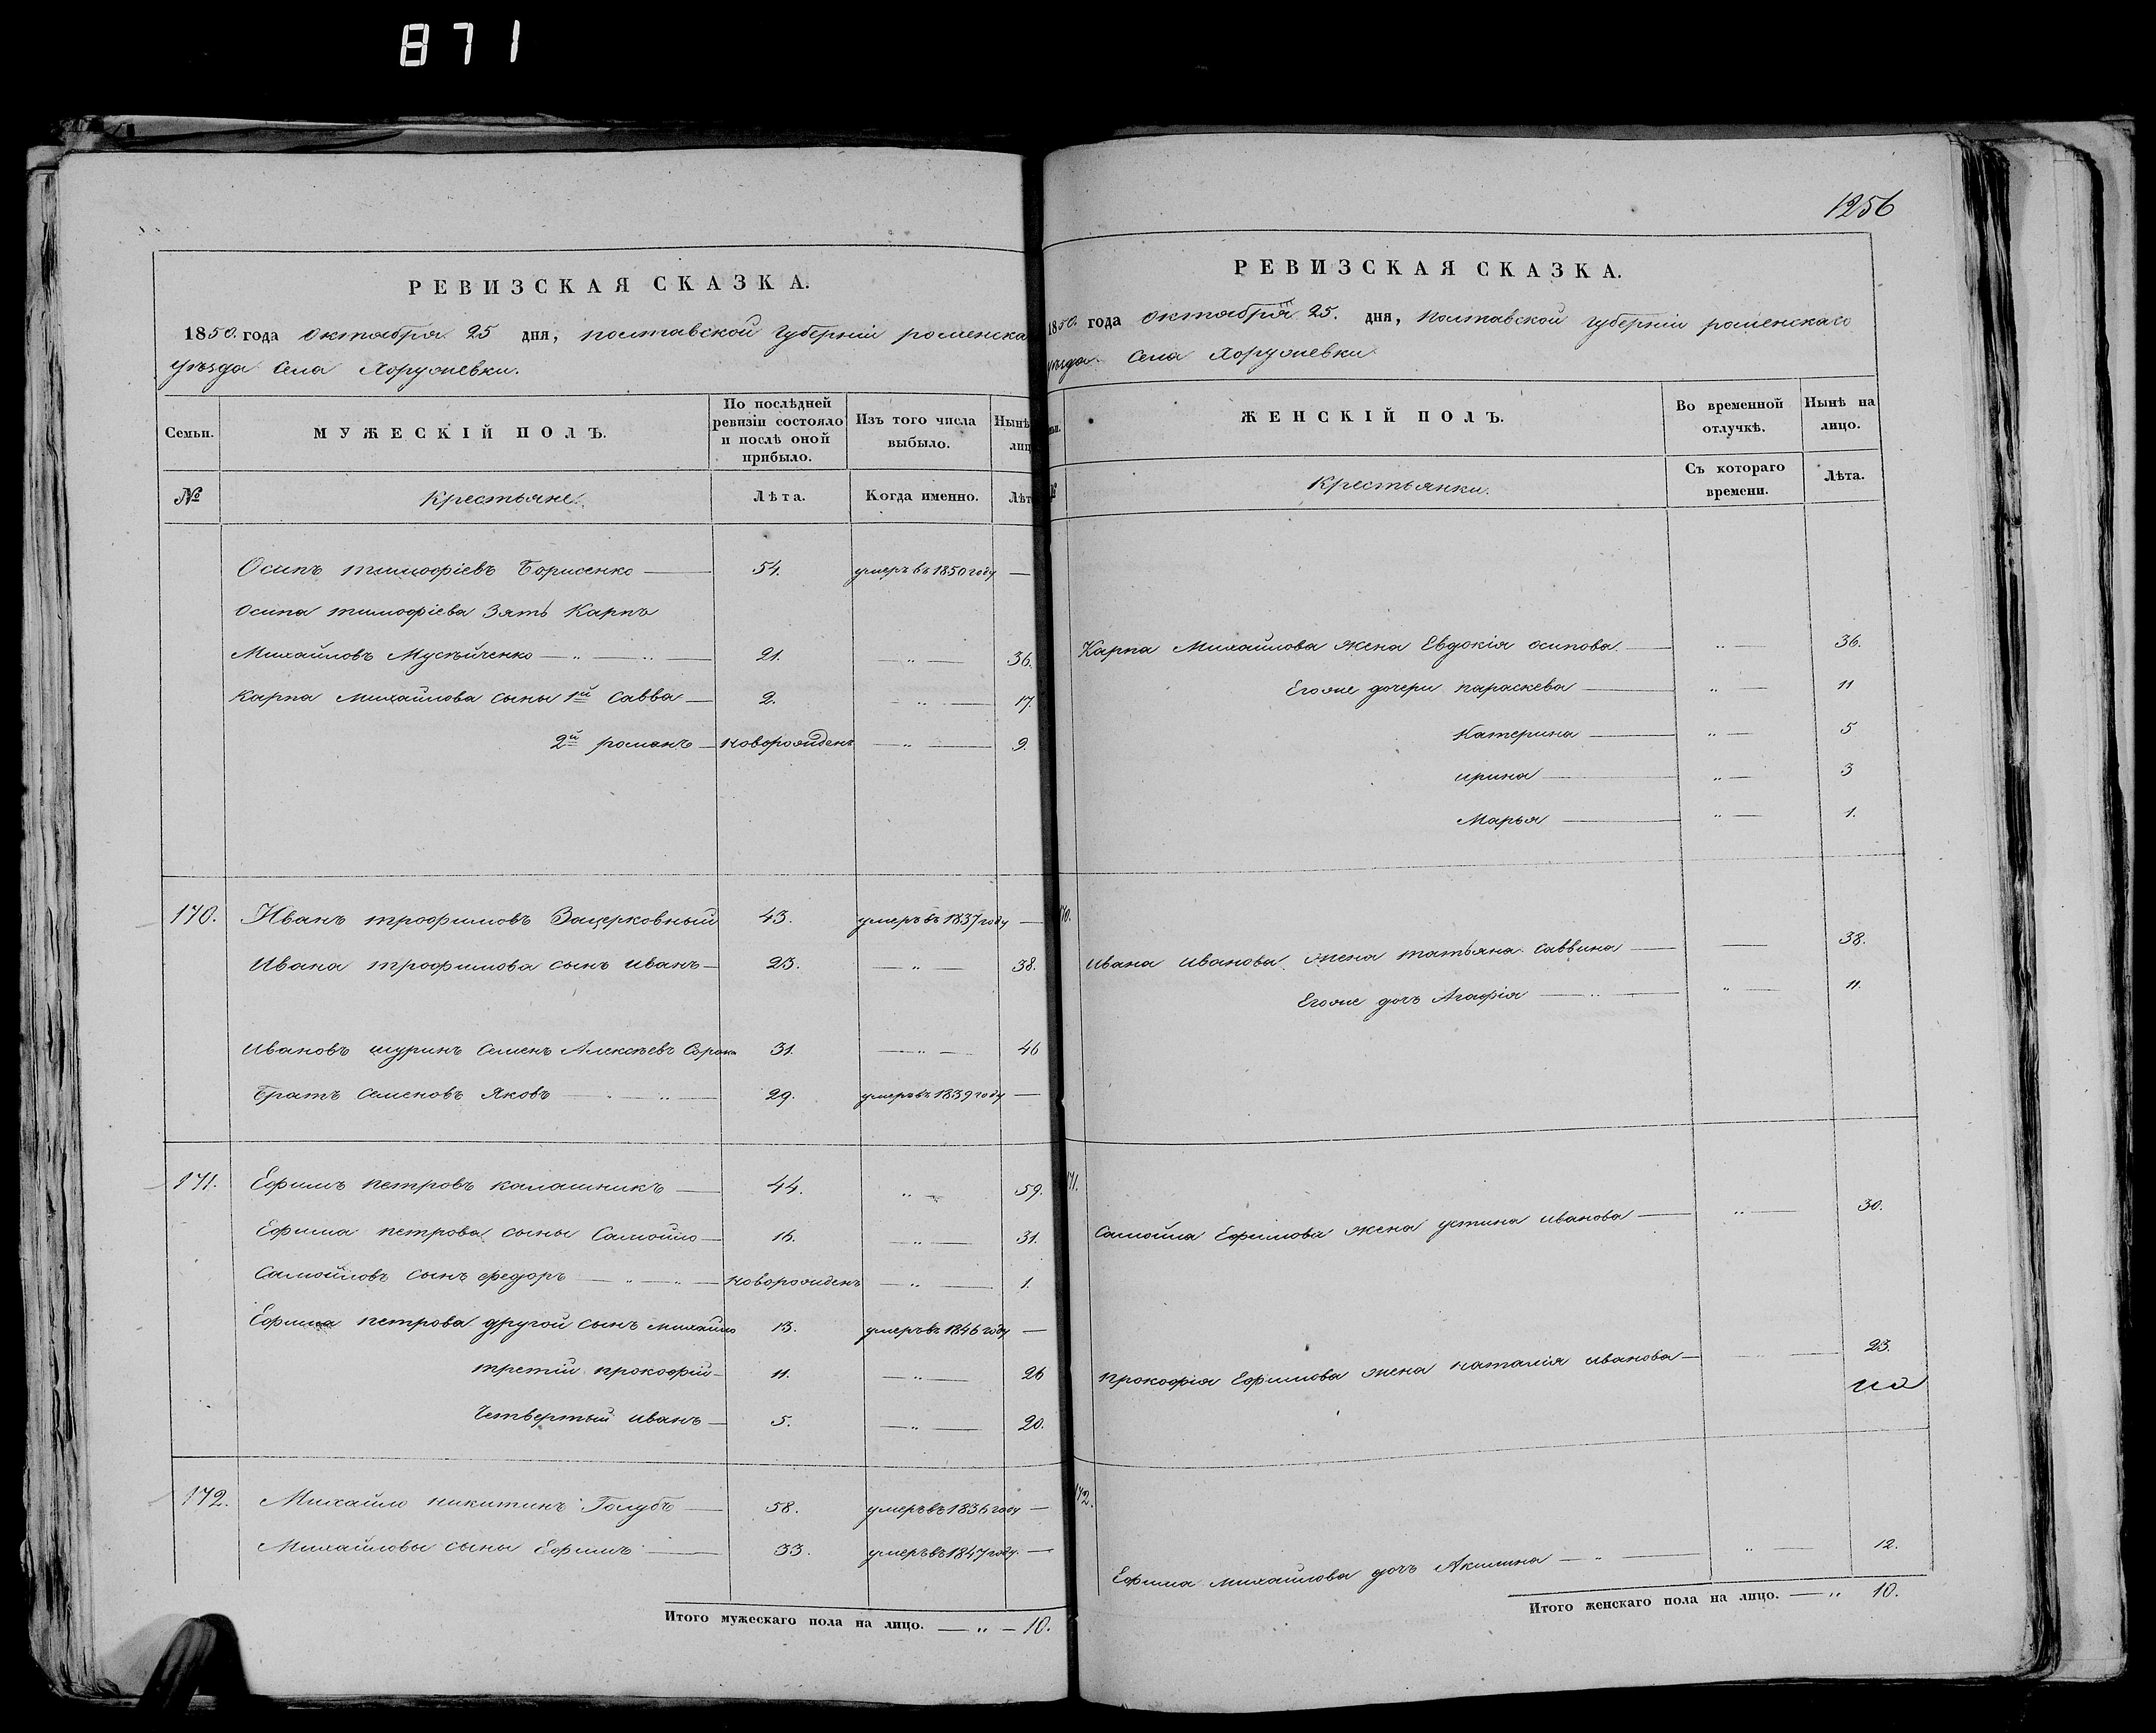 871
РЕВИЗСКАЯ СКАЗКА.
1850. года октября 25 дня, полтавской губерніи роменска
уѣзда Села Хоружевки.
Семьи. МУЖЕСКІЙ ПОЛЪ. По послѣдней ревизіи состояло и послѣ оной прибыло. Изъ того числа выбыло. Нынѣ лиц
№ Крестьяне. Лѣта. Когда именно. Лѣт
Осипъ тимофіевъ Борисенко 54. умеръ въ 1850 году —
Осипа тимофіева Зять Карпъ
Михайловъ Мусѣйченко — „ — „ — 21. „ — 36.
Карпа Михайлова сыны 1й Савва — 2. — „ — 17.
2й романъ — новорожденъ — „ — 9.
170. Иванъ трофимовъ Зацерковный 43. умеръ въ 1837 году —
Ивана трофимова сынъ иванъ — 23. — „ — 38.
Ивановъ шуринъ Семенъ Алексѣевъ Сорока 31. — „ — 46
Братъ Семеновъ Яковъ — „ — 29. умеръ въ 1839 году —
171. Ефимъ петровъ калашникъ — 44. „ — 59.
Ефима петрова сыны Самойло — 16. — „ — 31.
Самойловъ сынъ федоръ — „ — „ — новорожденъ — „ — 1.
Ефима петрова другой сынъ михайло 13. умеръ въ 1846 году —
третій прокофій — 11. — „ — 26
Четвертый иванъ — 5. — „ — 20.
172. Михайло никитинъ Голубъ — 58. умеръ въ 1836 году —
Михайловы сыны Ефимъ — 33. умеръ въ 1847 году. —
Итого мужескаго пола на лицо. — „ — 10.
1256
РЕВИЗСКАЯ СКАЗКА.
1850. года октября 25. дня, Полтавской губерніи роменскаго
уѣзда Села Хоружевки
ьи. ЖЕНСКІЙ ПОЛЪ. Во временной отлучкѣ. Нынѣ на лицо.
№ Крестьянки. Съ котораго времени. Лѣта.
Карпа Михайлова жена Евдокія осипова — „ — 36.
Егоже дочери параскева — „ — 11
Катерина — „ — 5
ирина — „ — 3
Марья — „ — 1.
170.
Ивана Иванова жена татьяна саввина — — 38.
Егоже дочь Агафія — „ — „ — 11.
171.
Самойла Ефимова жена устина иванова — „ — 30.
прокофія Ефимова жена наталія иванова — — 23.
172.
Ефима михайлова дочь Акилина — „ — „ — 12.
Итого женскаго пола на лицо. — „ 10.